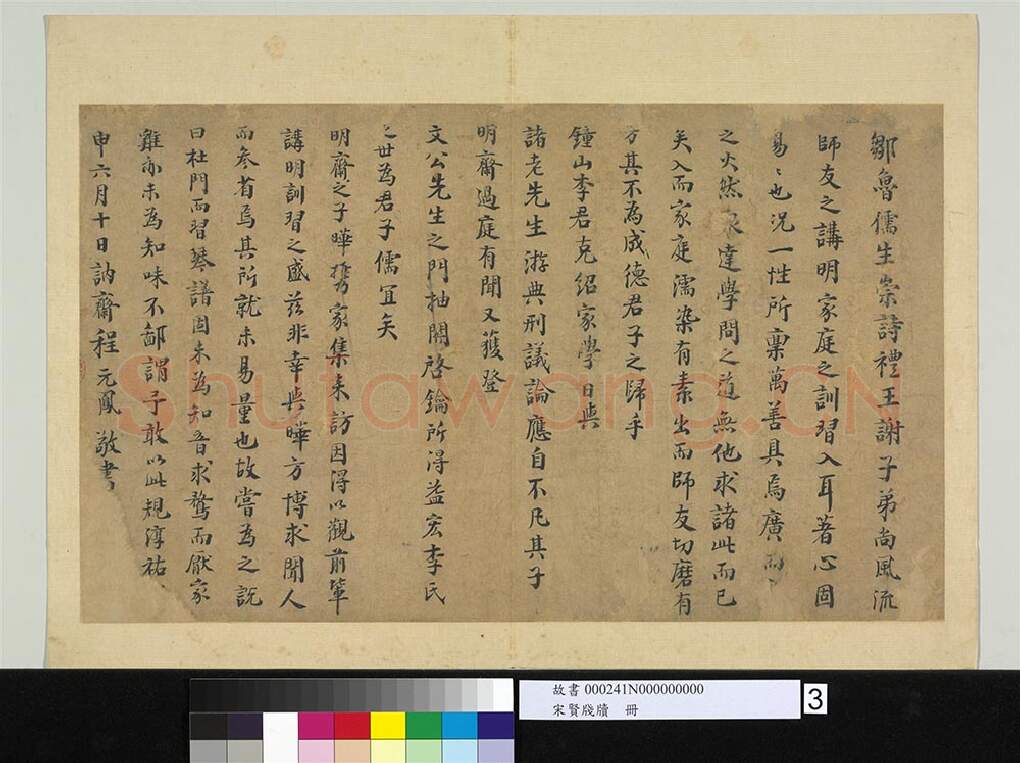 鄒魯儒生崇詩禮王謝子弟尚風流
師友之講明家庭之訓習入耳著心固
易〻也況一性所稟萬善具焉廣而
之火然泉達學問之道無他求諸此而已
矣入而家庭濡染有素出而師友切磨有
方其不為成德君子之歸乎
鍾山李君克紹家學日與
諸老先生游典刑議論應自不凡其子
明齋過庭有聞又獲登
文公先生之門抽關啓鑰所得益宏李氏
之世為君子儒宜矣
明齋之子曄攜家集來訪因得以觀前輩
講明訓習之盛茲非幸與曄方博求聞人
而參省焉其所就未易量也故嘗為之說
曰杜門而習琴譜固未為知音求騖而厭家
雞亦未為知味不鄙謂予敢以此規淳祐
申六月十日訥齋程元鳳敬書
Shufawang.CN
故書 000241N000000000
宋賢牋牘 冊
3